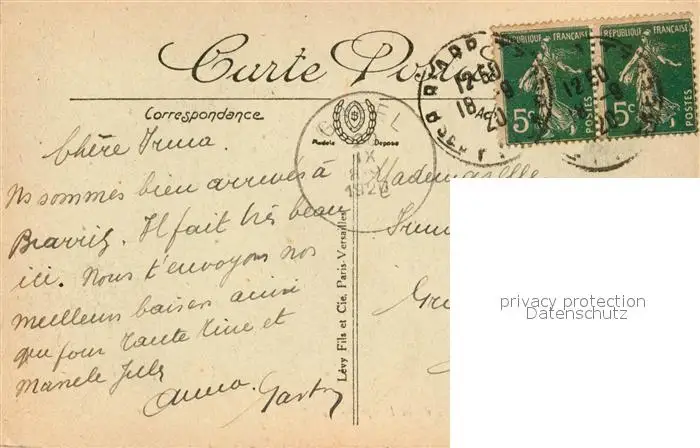 Carte Postale
RÉPUBLIQUE FRANÇAISE
RÉPUBLIQUE FRANÇAISE
5c POSTES
5c POSTES
12 50
18 -8
20
12 50
-8
20
Correspondance
Modèle Déposé
IX
1920
Chère Irma
Ns sommes bien arrivés à
Biarritz. Il fait très beau
ici. Nous t'envoyons nos
meilleurs baisers ainsi
que pour Tante Line et
Marcele
Anna. Gaston
Mademoiselle
Lévy Fils et Cie, Paris-Versailles
privacy protection
Datenschutz